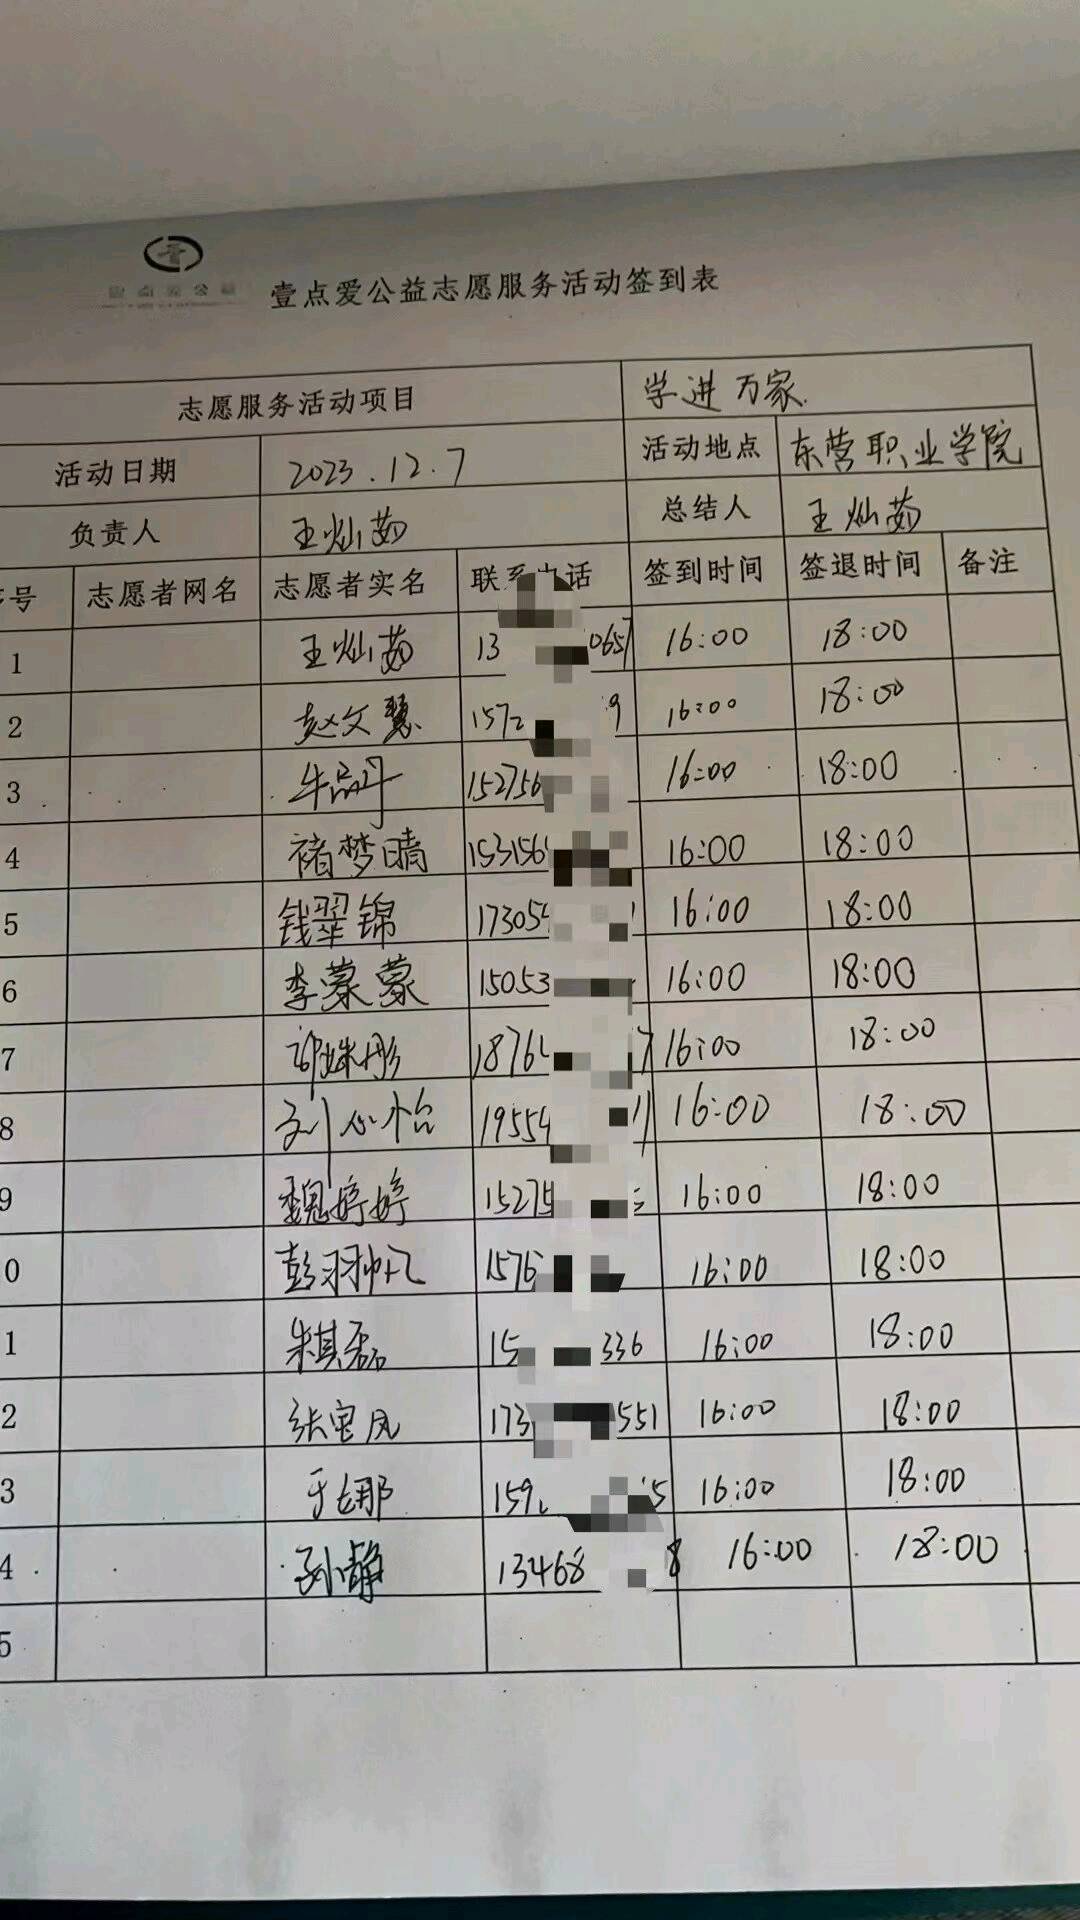 壹点爱公益
壹点爱公益志愿服务活动签到表
志愿服务活动项目 学进万家
活动日期 2023.12.7 活动地点 东营职业学院
负责人 王灿茹 总结人 王灿茹
序号 志愿者网名 志愿者实名 联系电话 签到时间 签退时间 备注
1 王灿茹 13 0657 16:00 18:00
2 赵文慧 157 9 16:00 18:00
3 牛品丹 152756 16:00 18:00
4 褚梦晴 153156 16:00 18:00
5 钱翠锦 17305 16:00 18:00
6 李蒙蒙 15053 16:00 18:00
7 姝彤 1876 7 16:00 18:00
8 刘心怡 19554 16:00 18:00
9 魏婷婷 15275 16:00 18:00
0 彭羽 1576 16:00 18:00
1 朱其磊 15 336 16:00 18:00
2 张宝凤 173 551 16:00 18:00
3 于娜 159 5 16:00 18:00
4 孙静 13468 8 16:00 18:00
5